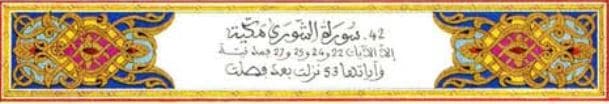 42. سورة الشورى مكية
إلا الآيات 22 و 24 و 25 و 27 فمدنية
وآياتها 53 نزلت بعد فصلت